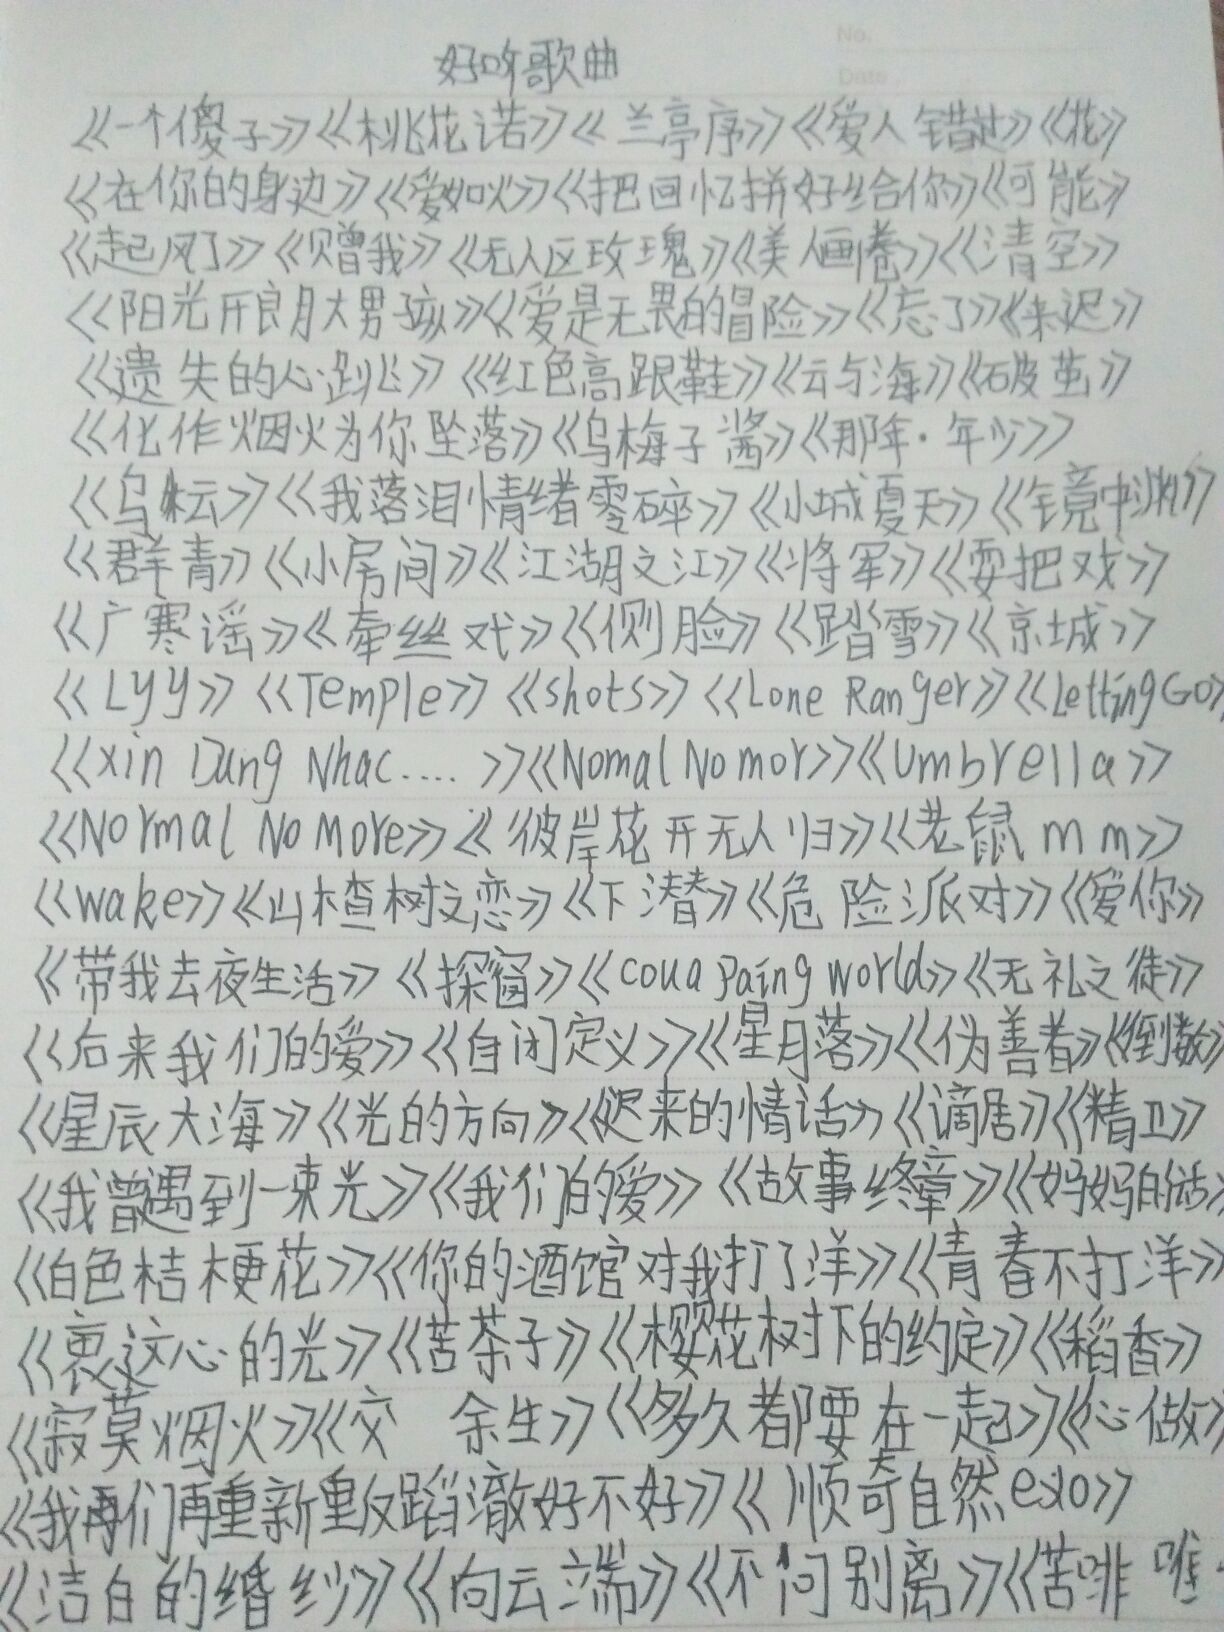 No.
Date
好听歌曲
《一个傻子》《桃花诺》《兰亭序》《爱人错过》《花》
《在你的身边》《爱如火》《把回忆拼好给你》《可能》
《起风了》《赠我》《无人区玫瑰》《美人画卷》《清空》
《阳光开朗大男孩》《爱是无畏的冒险》《忘了》《来迟》
《遗失的心跳》《红色高跟鞋》《云与海》《破茧》
《化作烟火为你坠落》《乌梅子酱》《那年·年少》
《乌云》《我落泪情绪零碎》《小城夏天》《镜中》
《群青》《小房间》《江湖之江》《将军》《耍把戏》
《广寒谣》《牵丝戏》《侧脸》《踏雪》《京城》
《Lyy》《Temple》《shots》《Lone Ranger》《Letting Go》
《xin Dung Nhac....》《Nomal No mor》《Umbrella》
《Normal No More》《彼岸花开无人归》《老鼠mm》
《wake》《山楂树之恋》《下潜》《危险派对》《爱你》
《带我去夜生活》《探窗》《coua paing world》《无礼之徒》
《后来我们的爱》《自闭定义》《星月落》《伪善者》《倒数》
《星辰大海》《光的方向》《迟来的情话》《谪居》《精卫》
《我曾遇到一束光》《我们的爱》《故事终章》《妈妈的话》
《白色桔梗花》《你的酒馆对我打了洋》《青春不打洋》
《衷这心的光》《苦茶子》《樱花树下的约定》《稻香》
《寂莫烟火》《交 余生》《多久都要在一起》《心做》
《我再们再重新重反蹈澈好不好》《顺奇自然exo》
《洁白的婚纱》《向云端》《不问别离》《苦啡 唯